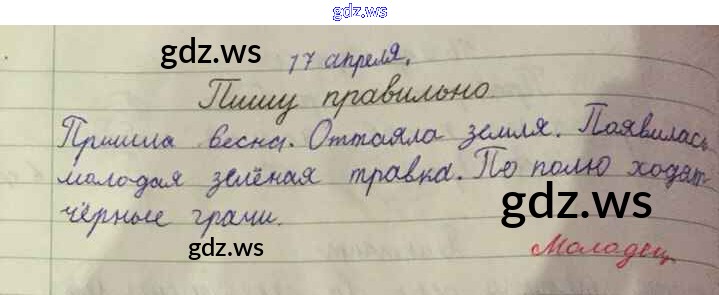 gdz.ws
gdz.ws
17 апреля.
Пишу правильно.
Пришла весна. Оттаяла земля. Появилась
молодая зелёная травка. По полю ходят
чёрные грачи.
gdz.ws
gdz.ws
Молодец